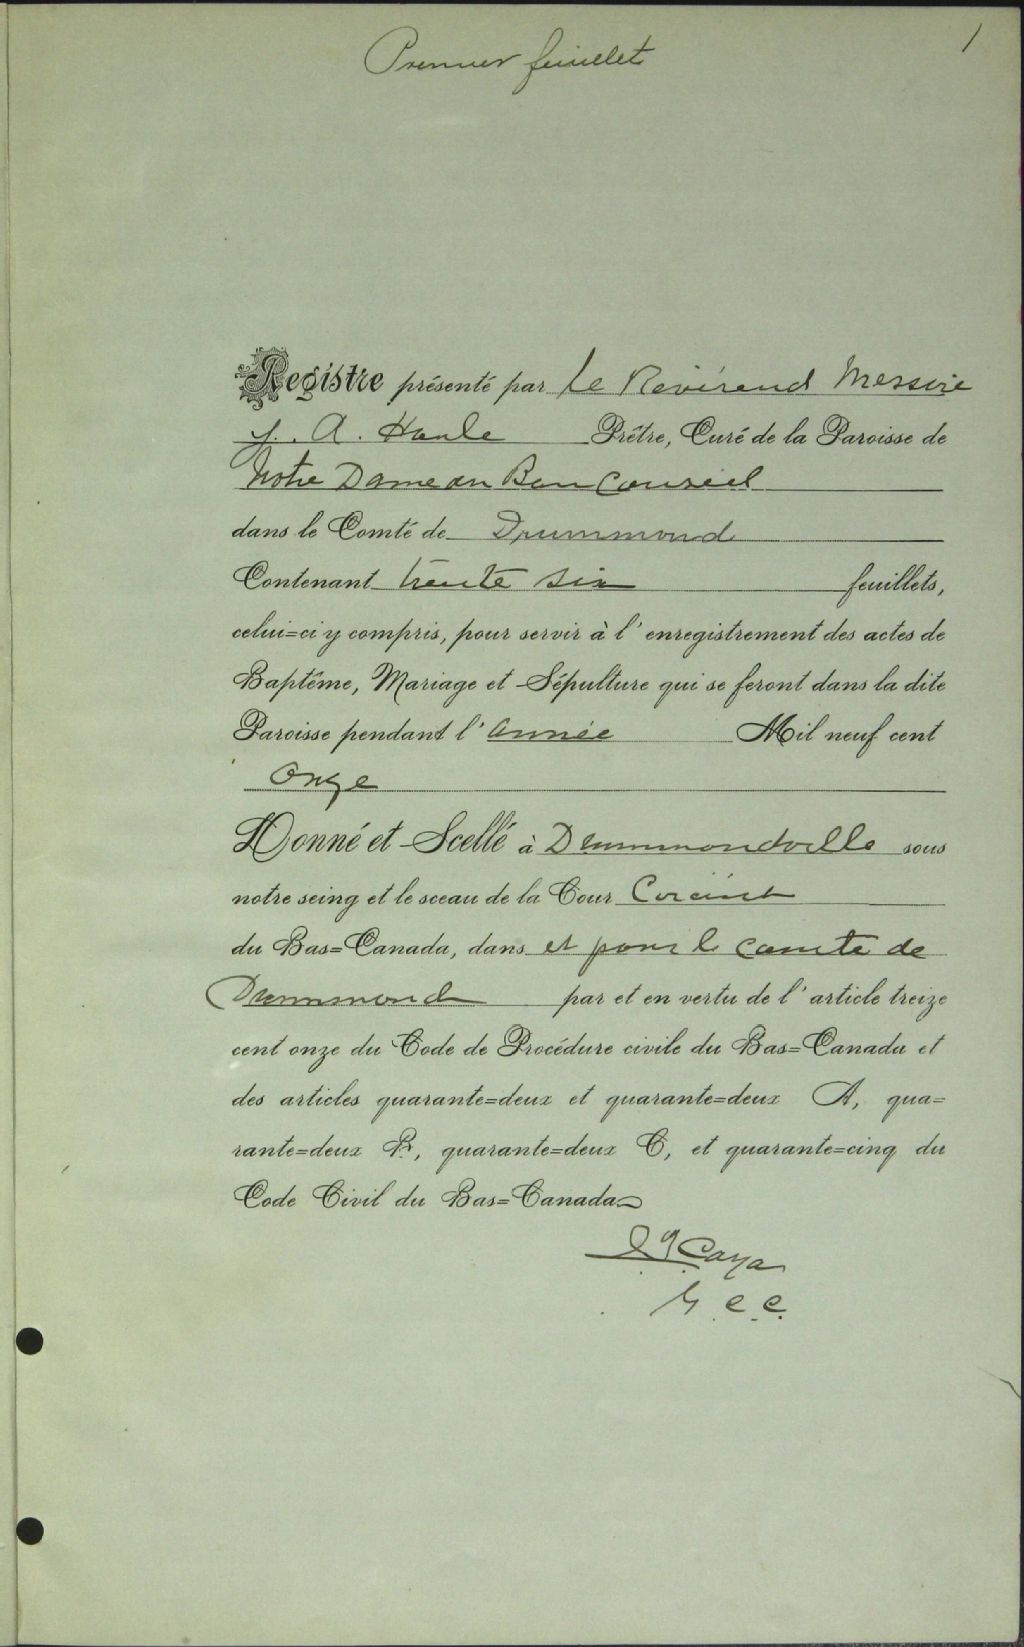 Premier feuillet
1
Registre présenté par Le Révérend Messire
J. A. Houle Prêtre, Curé de la Paroisse de
Notre Dame du Bon Conseil
dans le Comté de Drummond
Contenant trente six feuillets,
celui=ci y compris, pour servir à l'enregistrement des actes de
Baptême, Mariage et Sépulture qui se feront dans la dite
Paroisse pendant l'année Mil neuf cent
onze
Donné et Scellé à Drummondville sous
notre seing et le sceau de la Cour Circuit
du Bas=Canada, dans et pour le comté de
Drummond par et en vertu de l'article treize
cent onze du Code de Procédure civile du Bas=Canada et
des articles quarante=deux et quarante=deux A, qua=
rante=deux B, quarante=deux C, et quarante=cinq du
Code Civil du Bas=Canada
Caya
G. C. C.